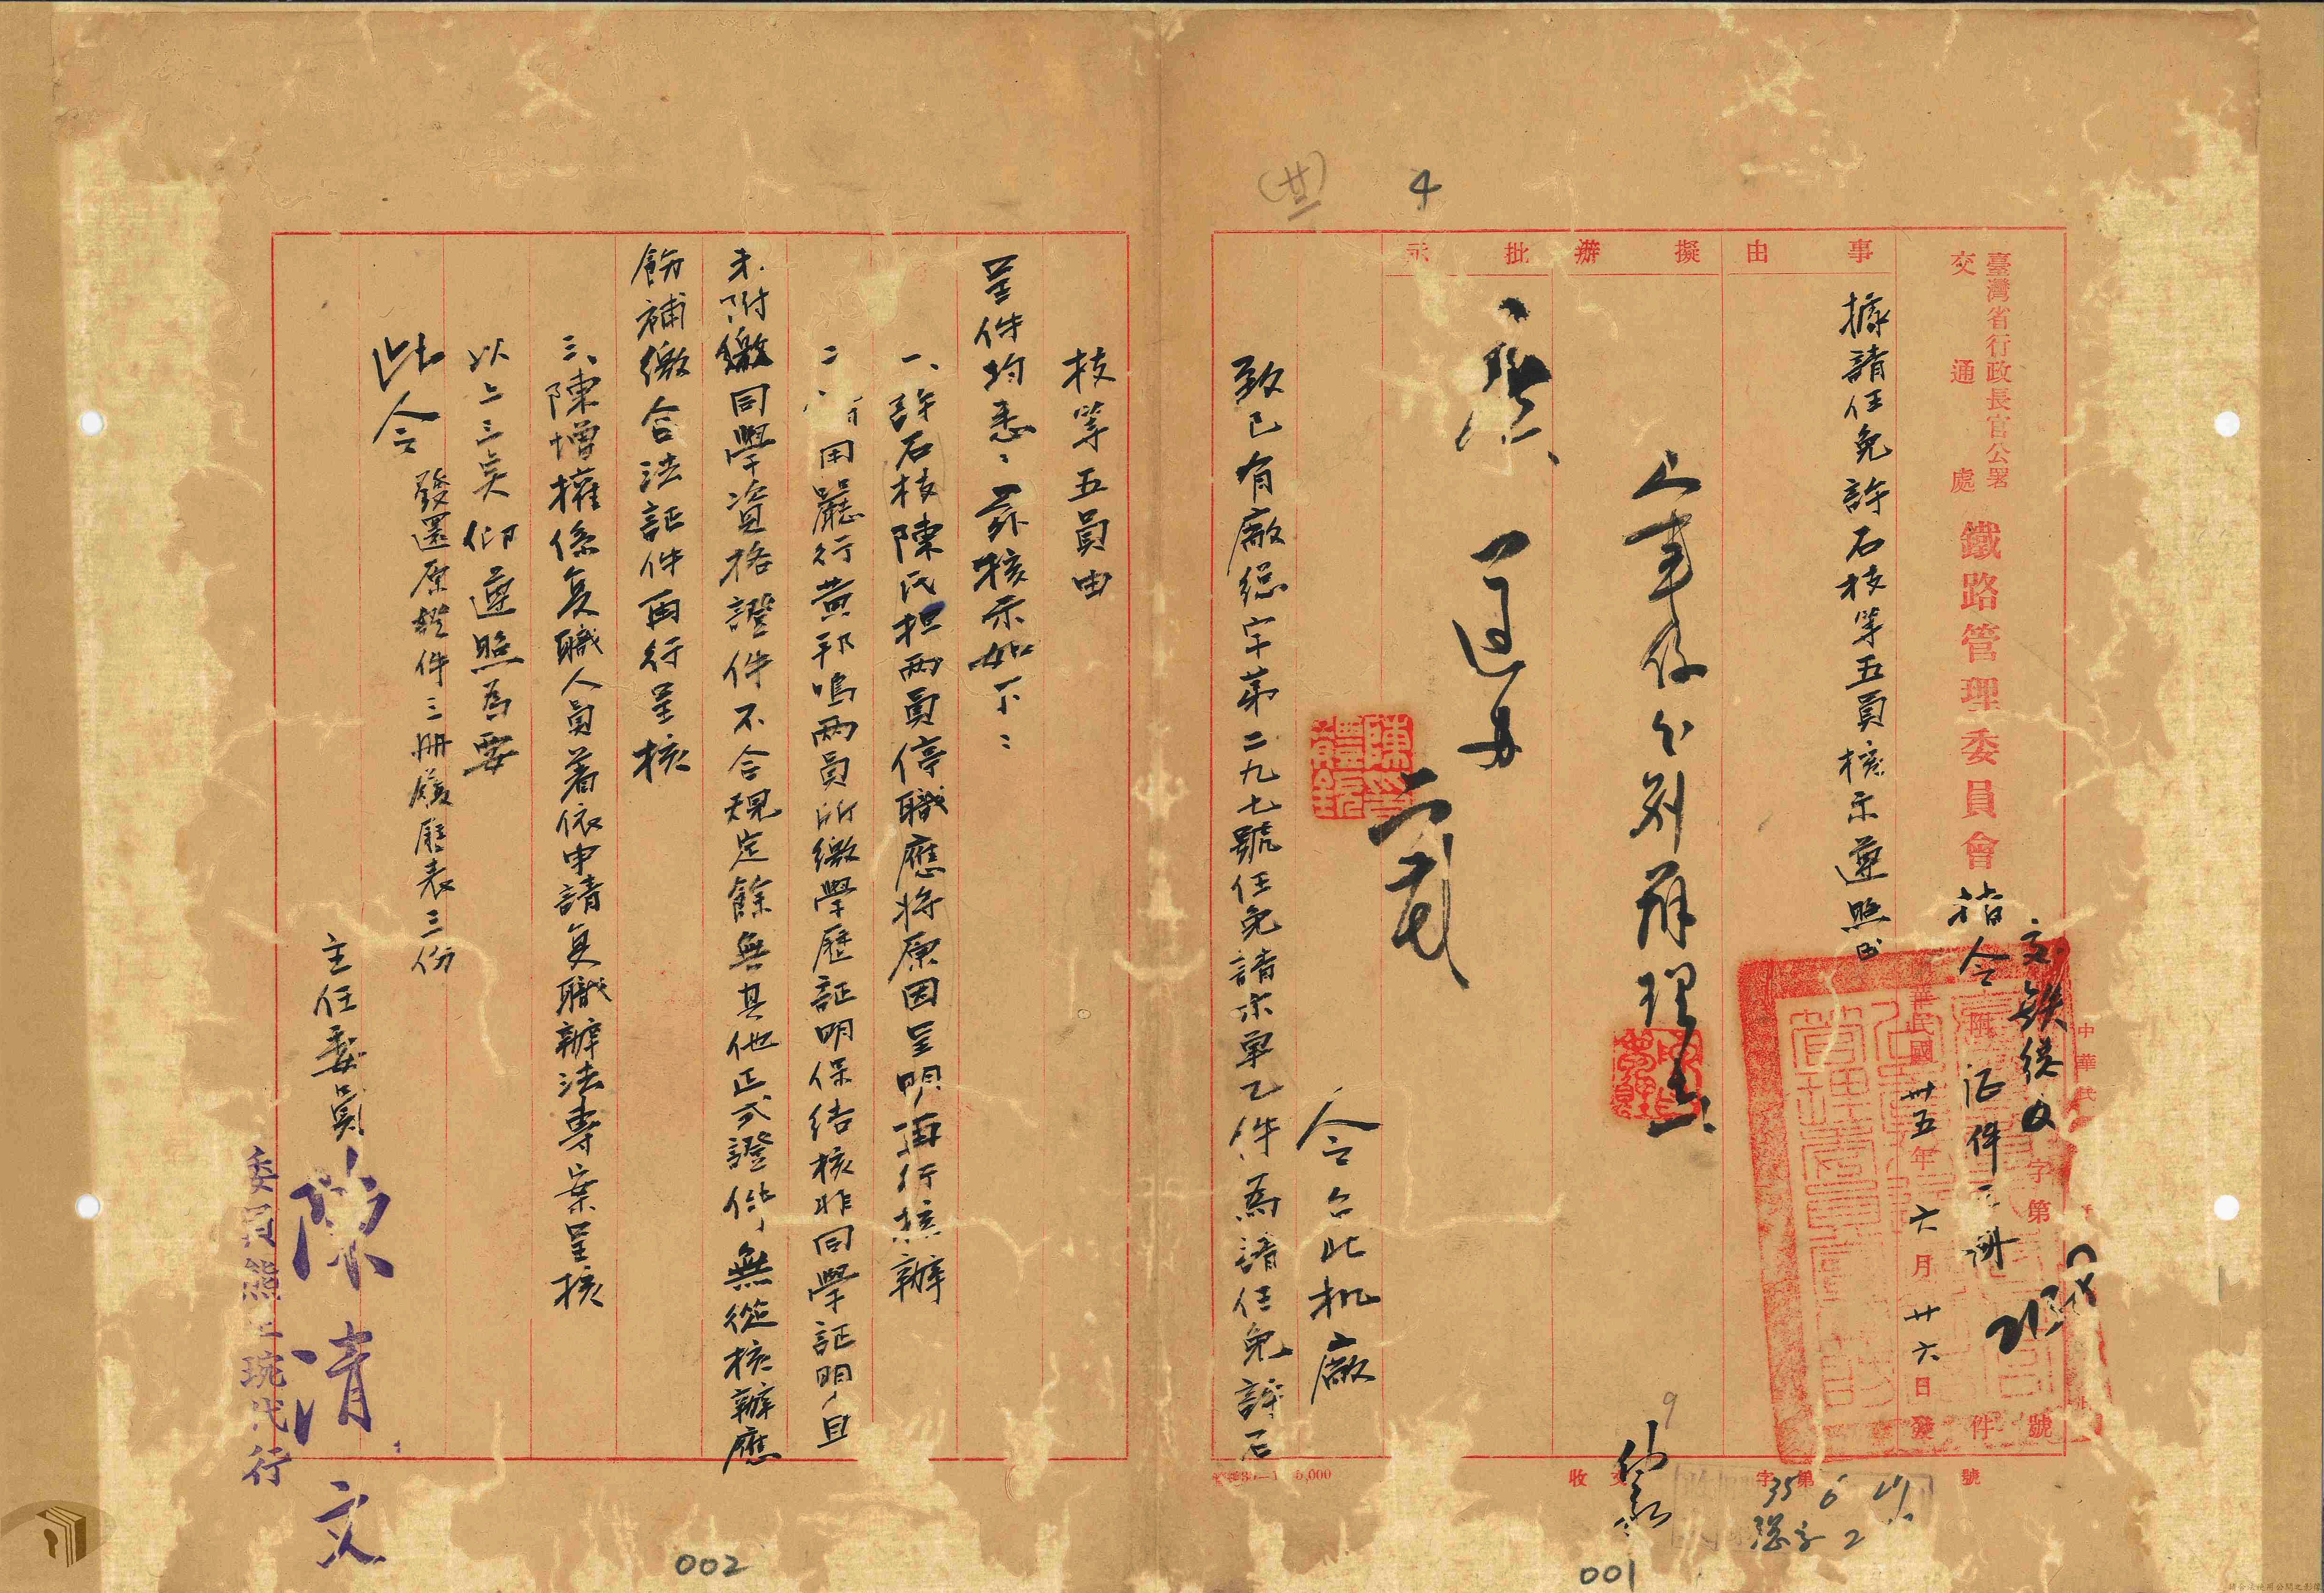 臺灣省行政長官公署
交通處
鐵路管理委員會
指令
交鉄總文字第號
附证件三冊
中華民國卅五年六月廿六日發
事由
據請任免許石枝等五員核示遵照由
擬辦
人事系分别辦理
批示
令台北机廠
致已有廠總字第二九七號任免請示單乙件為請任免許石
枝等五員由
呈件均悉、茲核示如下：
一、許石枝陳氏担兩員停職應將原因呈明再行核辦
二、用嚴行黄邦鳴兩員所繳學歷証明保结核非同學証明，且
未附繳同學資格證件不合規定餘無其他正式證件，無從核辦應
飭補繳合法証件再行呈核
三、陳增權係复職人員著依申請复職辦法專案呈核
以上三吴仰遵照為要
此令
發還原繳件三冊履歷表三份
主任委員 陳清文
委員代行
收文字第號
35 6 27
總字 2
4
(廿)
9
001
002